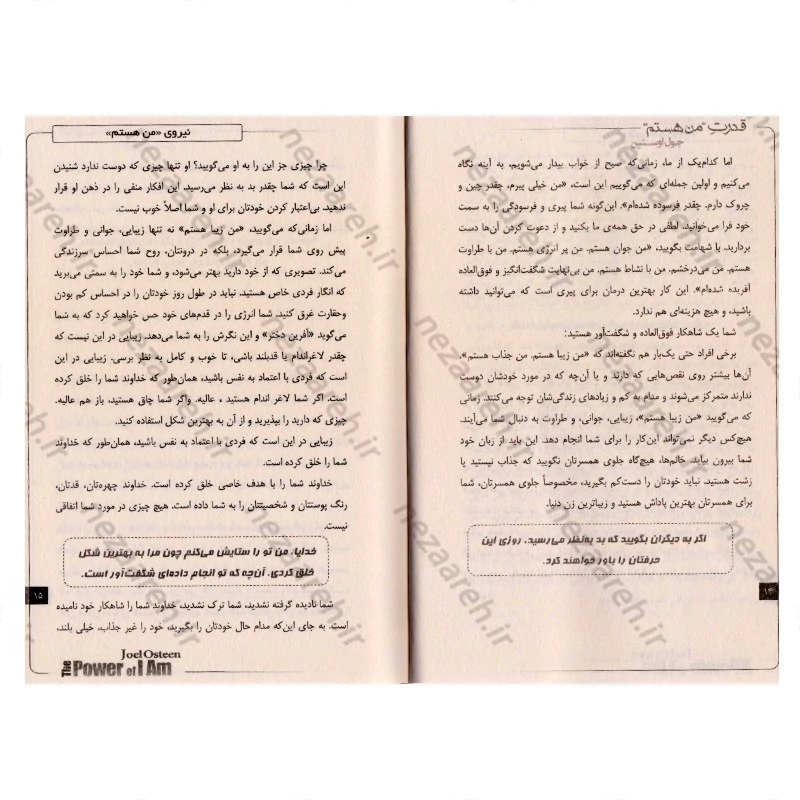 قدرت "من هستم"
جول اوستین
اما کدام‌یک از ما، زمانی‌که صبح از خواب بیدار می‌شویم، به آینه نگاه
می‌کنیم و اولین جمله‌ای که می‌گوییم این است، «من خیلی پیرم، چقدر چین و
چروک دارم. چقدر فرسوده شده‌ام». این‌گونه شما پیری و فرسودگی را به سمت
خود فرا می‌خوانید. لطفی در حق همه‌ی ما بکنید و از دعوت کردن آن‌ها دست
بردارید. با شهامت بگویید، «من جوان هستم. من پر انرژی هستم. من با طراوت
هستم. من می‌درخشم، من با نشاط هستم. من بی‌نهایت شگفت‌انگیز و فوق‌العاده
آفریده شده‌ام». این کار بهترین درمان برای پیری است که می‌توانید داشته
باشید، و هیچ هزینه‌ای هم ندارد.
شما یک شاهکار فوق‌العاده و شگفت‌آور هستید:
برخی افراد حتی یک‌بار هم نگفته‌اند که «من زیبا هستم. من جذاب هستم».
آن‌ها بیشتر روی نقص‌هایی که دارند و یا آن‌چه که در مورد خودشان دوست
ندارند متمرکز می‌شوند و مدام به کم و زیادهای زندگی‌شان توجه می‌کنند. زمانی
که می‌گویید «من زیبا هستم»، زیبایی، جوانی، و طراوت به دنبال شما می‌آیند.
هیچ‌کس دیگر نمی‌تواند این‌کار را برای شما انجام دهد. این باید از زبان خود
شما بیرون بیاید. خانم‌ها، هیچ‌گاه جلوی همسرتان نگویید که جذاب نیستید یا
زشت هستید. نباید خودتان را دست‌کم بگیرید، مخصوصاً جلوی همسرتان، شما
برای همسرتان بهترین پاداش هستید و زیباترین زن دنیا.
اگر به دیگران بگویید که بد به‌نظر می‌رسید، روزی این
حرفتان را باور خواهند کرد.
۱۴
نیروی «من هستم»
چرا چیزی جز این را به او می‌گویید؟ او تنها چیزی که دوست ندارد شنیدن
این است که شما چقدر بد به نظر می‌رسید. این افکار منفی را در ذهن او قرار
ندهید. بی‌اعتبار کردن خودتان برای او و شما اصلاً خوب نیست.
اما زمانی‌که می‌گویید، «من زیبا هستم» نه تنها زیبایی، جوانی و طراوت
پیش روی شما قرار می‌گیرد، بلکه در درونتان، روح شما احساس سرزندگی
می‌کند. تصویری که از خود دارید بهتر می‌شود، و شما خود را به سمتی می‌برید
که انگار فردی خاص هستید. نباید در طول روز خودتان را در احساس کم بودن
وحقارت غرق کنید. شما انرژی را در قدم‌های خود حس خواهید کرد که به شما
می‌گوید «آفرین دختر» و این نگرش را به شما می‌دهد. زیبایی در این نیست که
چقدر لاغراندام یا قدبلند باشی، تا خوب و کامل به نظر برسی. زیبایی در این
است که فردی با اعتماد به نفس باشید، همان‌طور که خداوند شما را خلق کرده
است. اگر شما لاغر اندام هستید ، عالیه. واگر شما چاق هستید، باز هم عالیه.
چیزی که دارید را بپذیرید و از آن به بهترین شکل استفاده کنید.
زیبایی در این است که فردی با اعتماد به نفس باشید، همان‌طور که خداوند
شما را خلق کرده است.
خداوند شما را با هدف خاصی خلق کرده است. خداوند چهره‌تان، قدتان،
رنگ پوستتان و شخصیتتان را به شما داده است. هیچ چیزی در مورد شما اتفاقی
نیست.
خدایا، من تو را ستایش می‌کنم چون مرا به بهترین شکل
خلق کردی. آن‌چه که تو انجام داده‌ای شگفت‌آور است.
شما نادیده گرفته نشدید، شما ترک نشدید، خداوند شما را شاهکار خود نامیده
است. به جای این‌که مدام حال خودتان را بگیرید، خود را غیر جذاب، خیلی بلند،
۱۵
Joel Osteen
The Power of I Am
nezaareh.ir